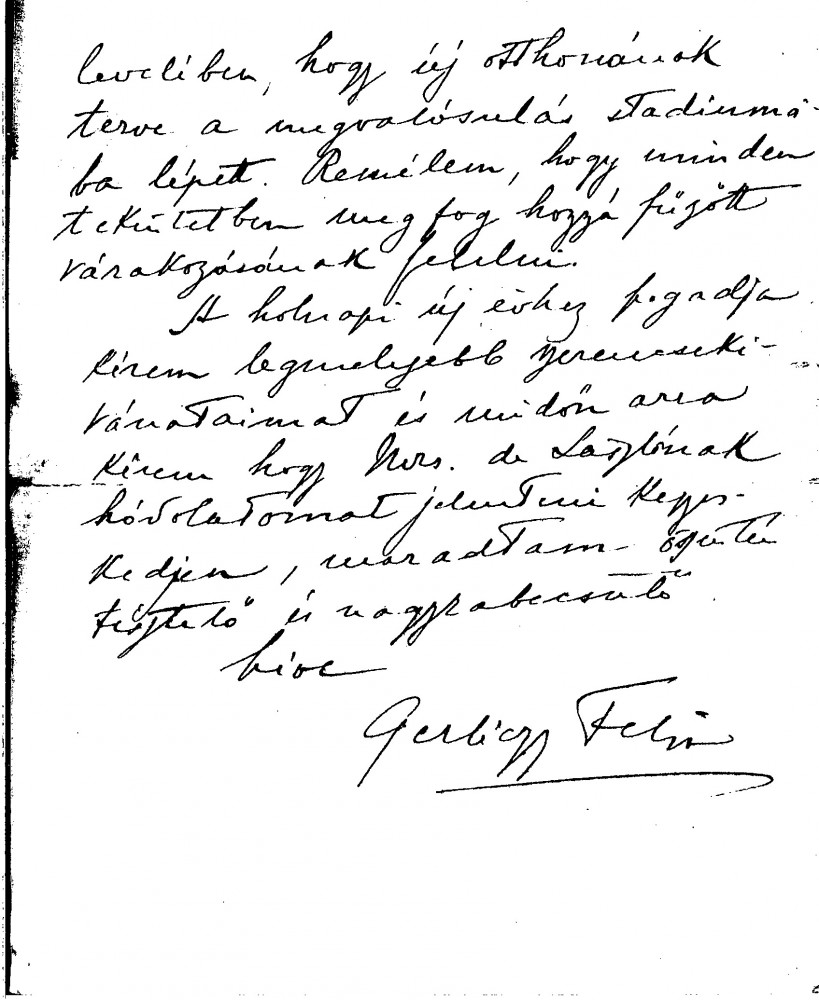 levelében, hogy új otthonának
terve a megvalósulás stadiumá-
ba lépett. Remélem, hogy minden
tekintetben meg fog hozzá fűzött
várakozásának felelni.
A holnapi új évhez fogadja
kérem legmelegebb szerencseki-
vánataimat és midőn arra
kérem hogy Mrs. de Laszlónak
hódolatomat jelenteni kegyes-
kedjen, maradtam őszintén
tisztelő és nagyrabecsülő
híve
Gerliczy Felix